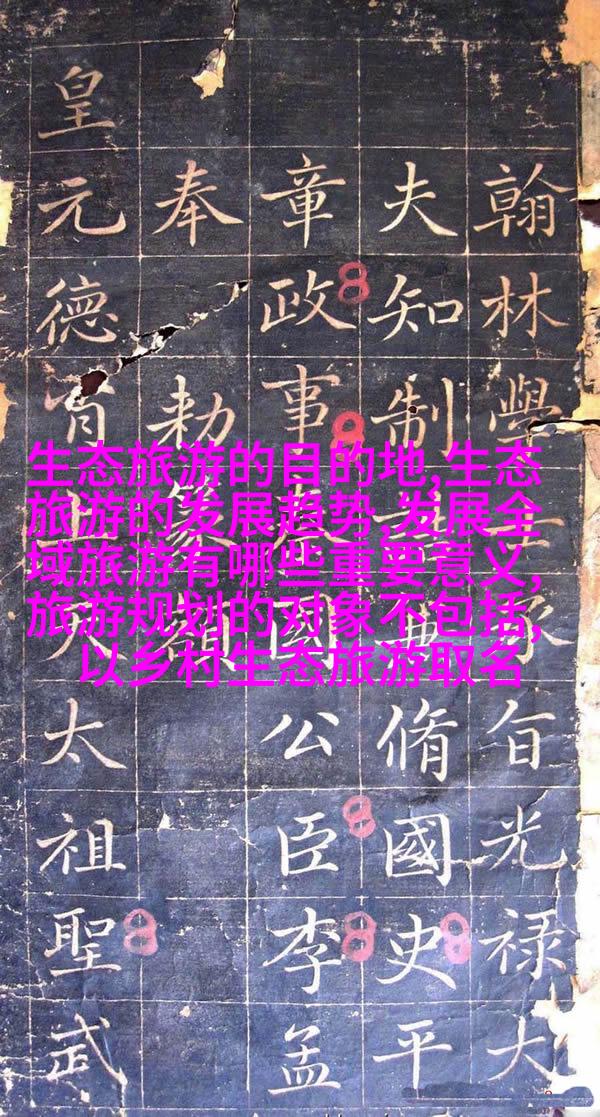 翰林學承旨光禄大
夫知制脩國史平
章政事國公臣李孟
奉勑篆
皇元德太祖聖武
生态旅游的目的地,生态
旅游的发展趋势,发展全
域旅游有哪些重要意义,
旅游规划的对象不包括,
以乡村生态旅游取名